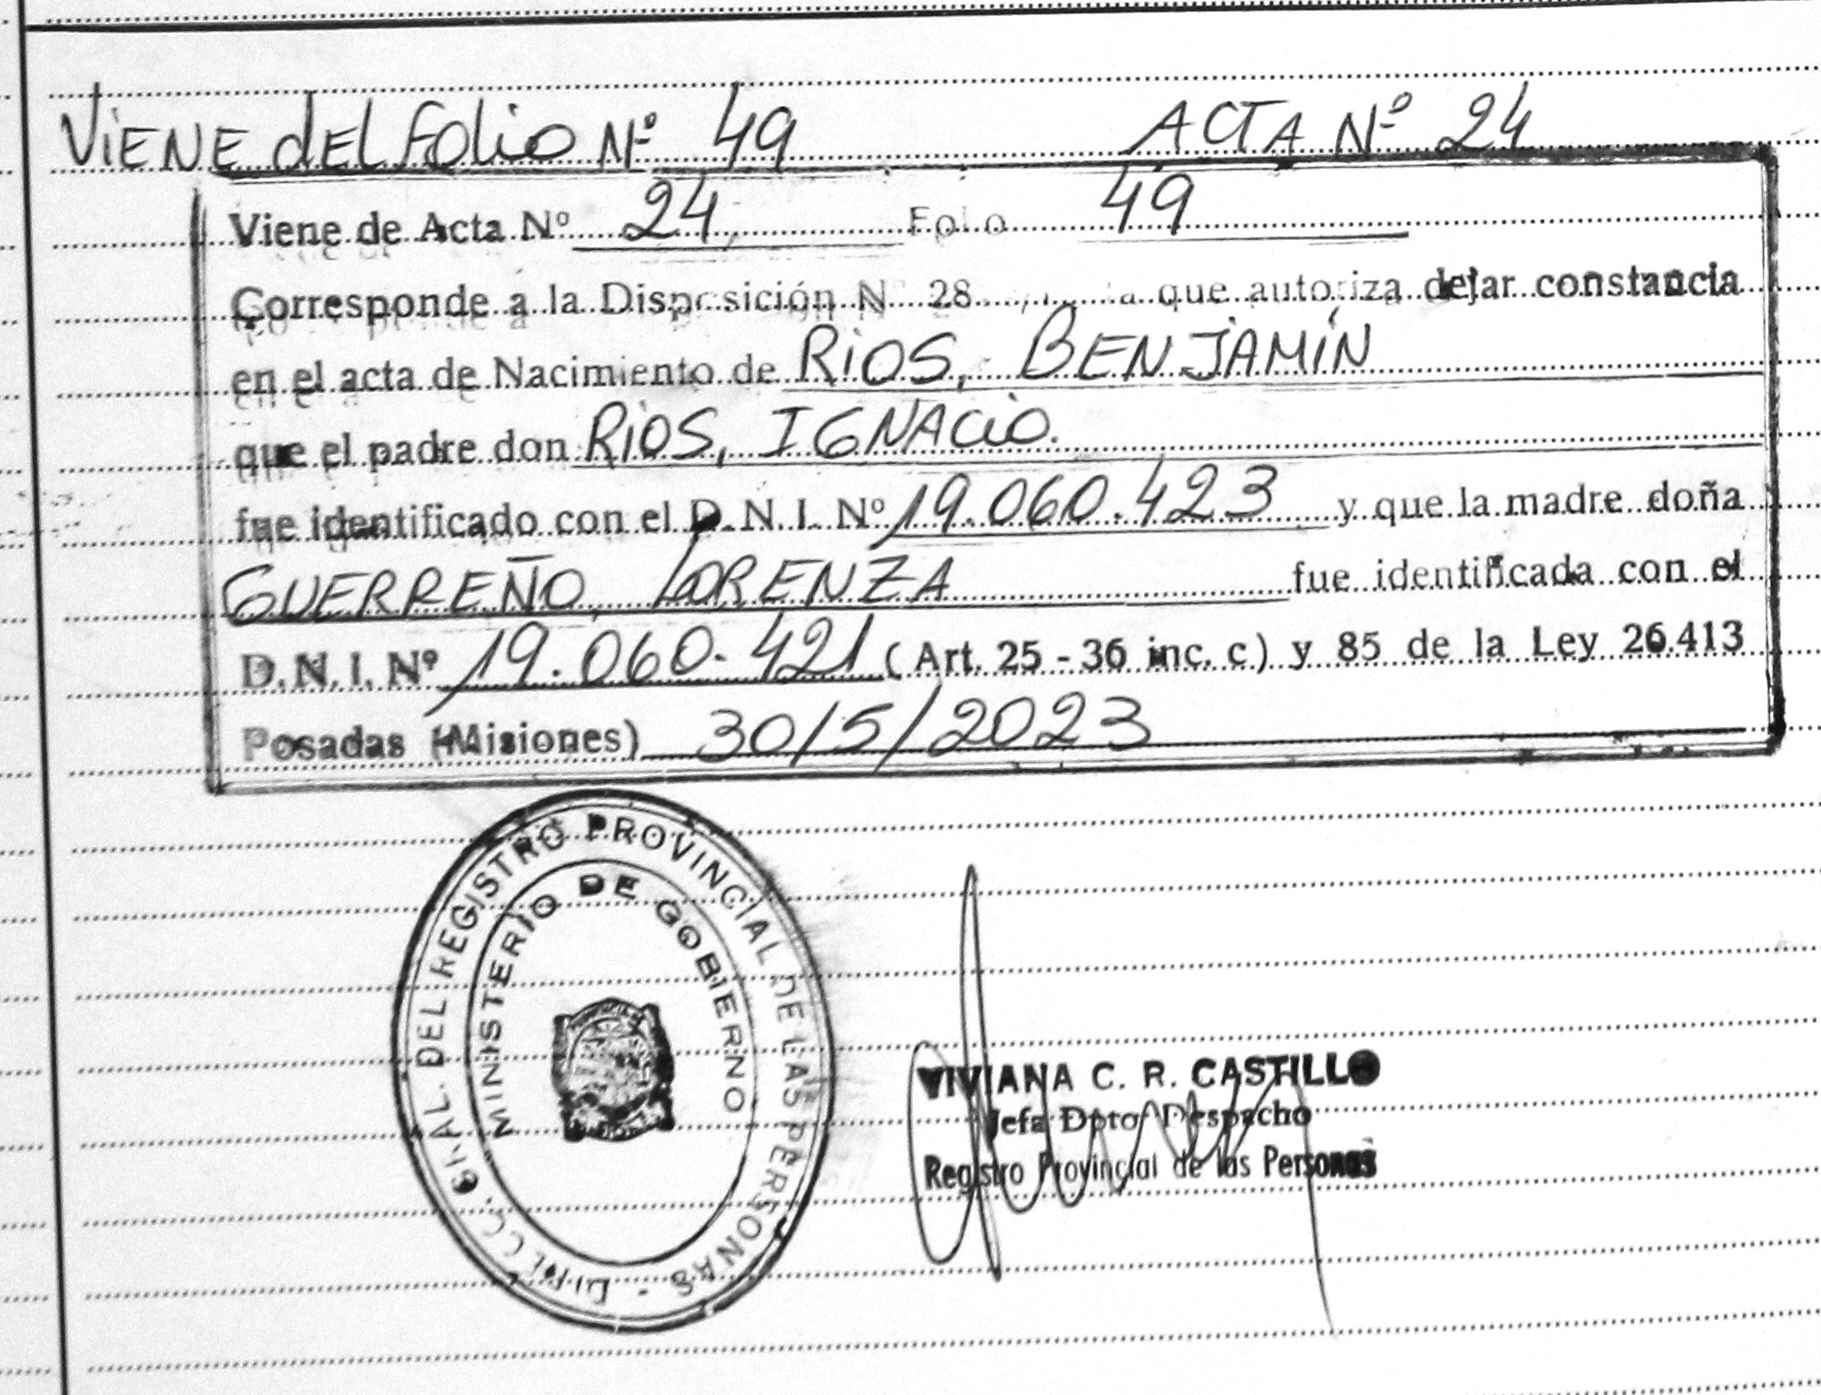 VIENE DEL FOLIO Nº 49 ACTA Nº 24
Viene de Acta Nº 24 Folio 49
Corresponde a la Disposición N 28 que autoriza dejar constancia
en el acta de Nacimiento de RIOS, BENJAMÍN
que el padre don RIOS, IGNACIO.
fue identificado con el D.N.I. Nº 19.060.423 y que la madre doña
GUERREÑO, LORENZA fue identificada con el
D.N.I. Nº 19.060.421 (Art. 25 - 36 inc. c) y 85 de la Ley 26.413
Posadas (Misiones) 30/5/2023
DIRECC. GRAL. DEL REGISTRO PROVINCIAL DE LAS PERSONAS -
MINISTERIO DE GOBIERNO
VIVIANA C. R. CASTILLO
Jefa Dpto Despacho
Registro Provincial de las Personas